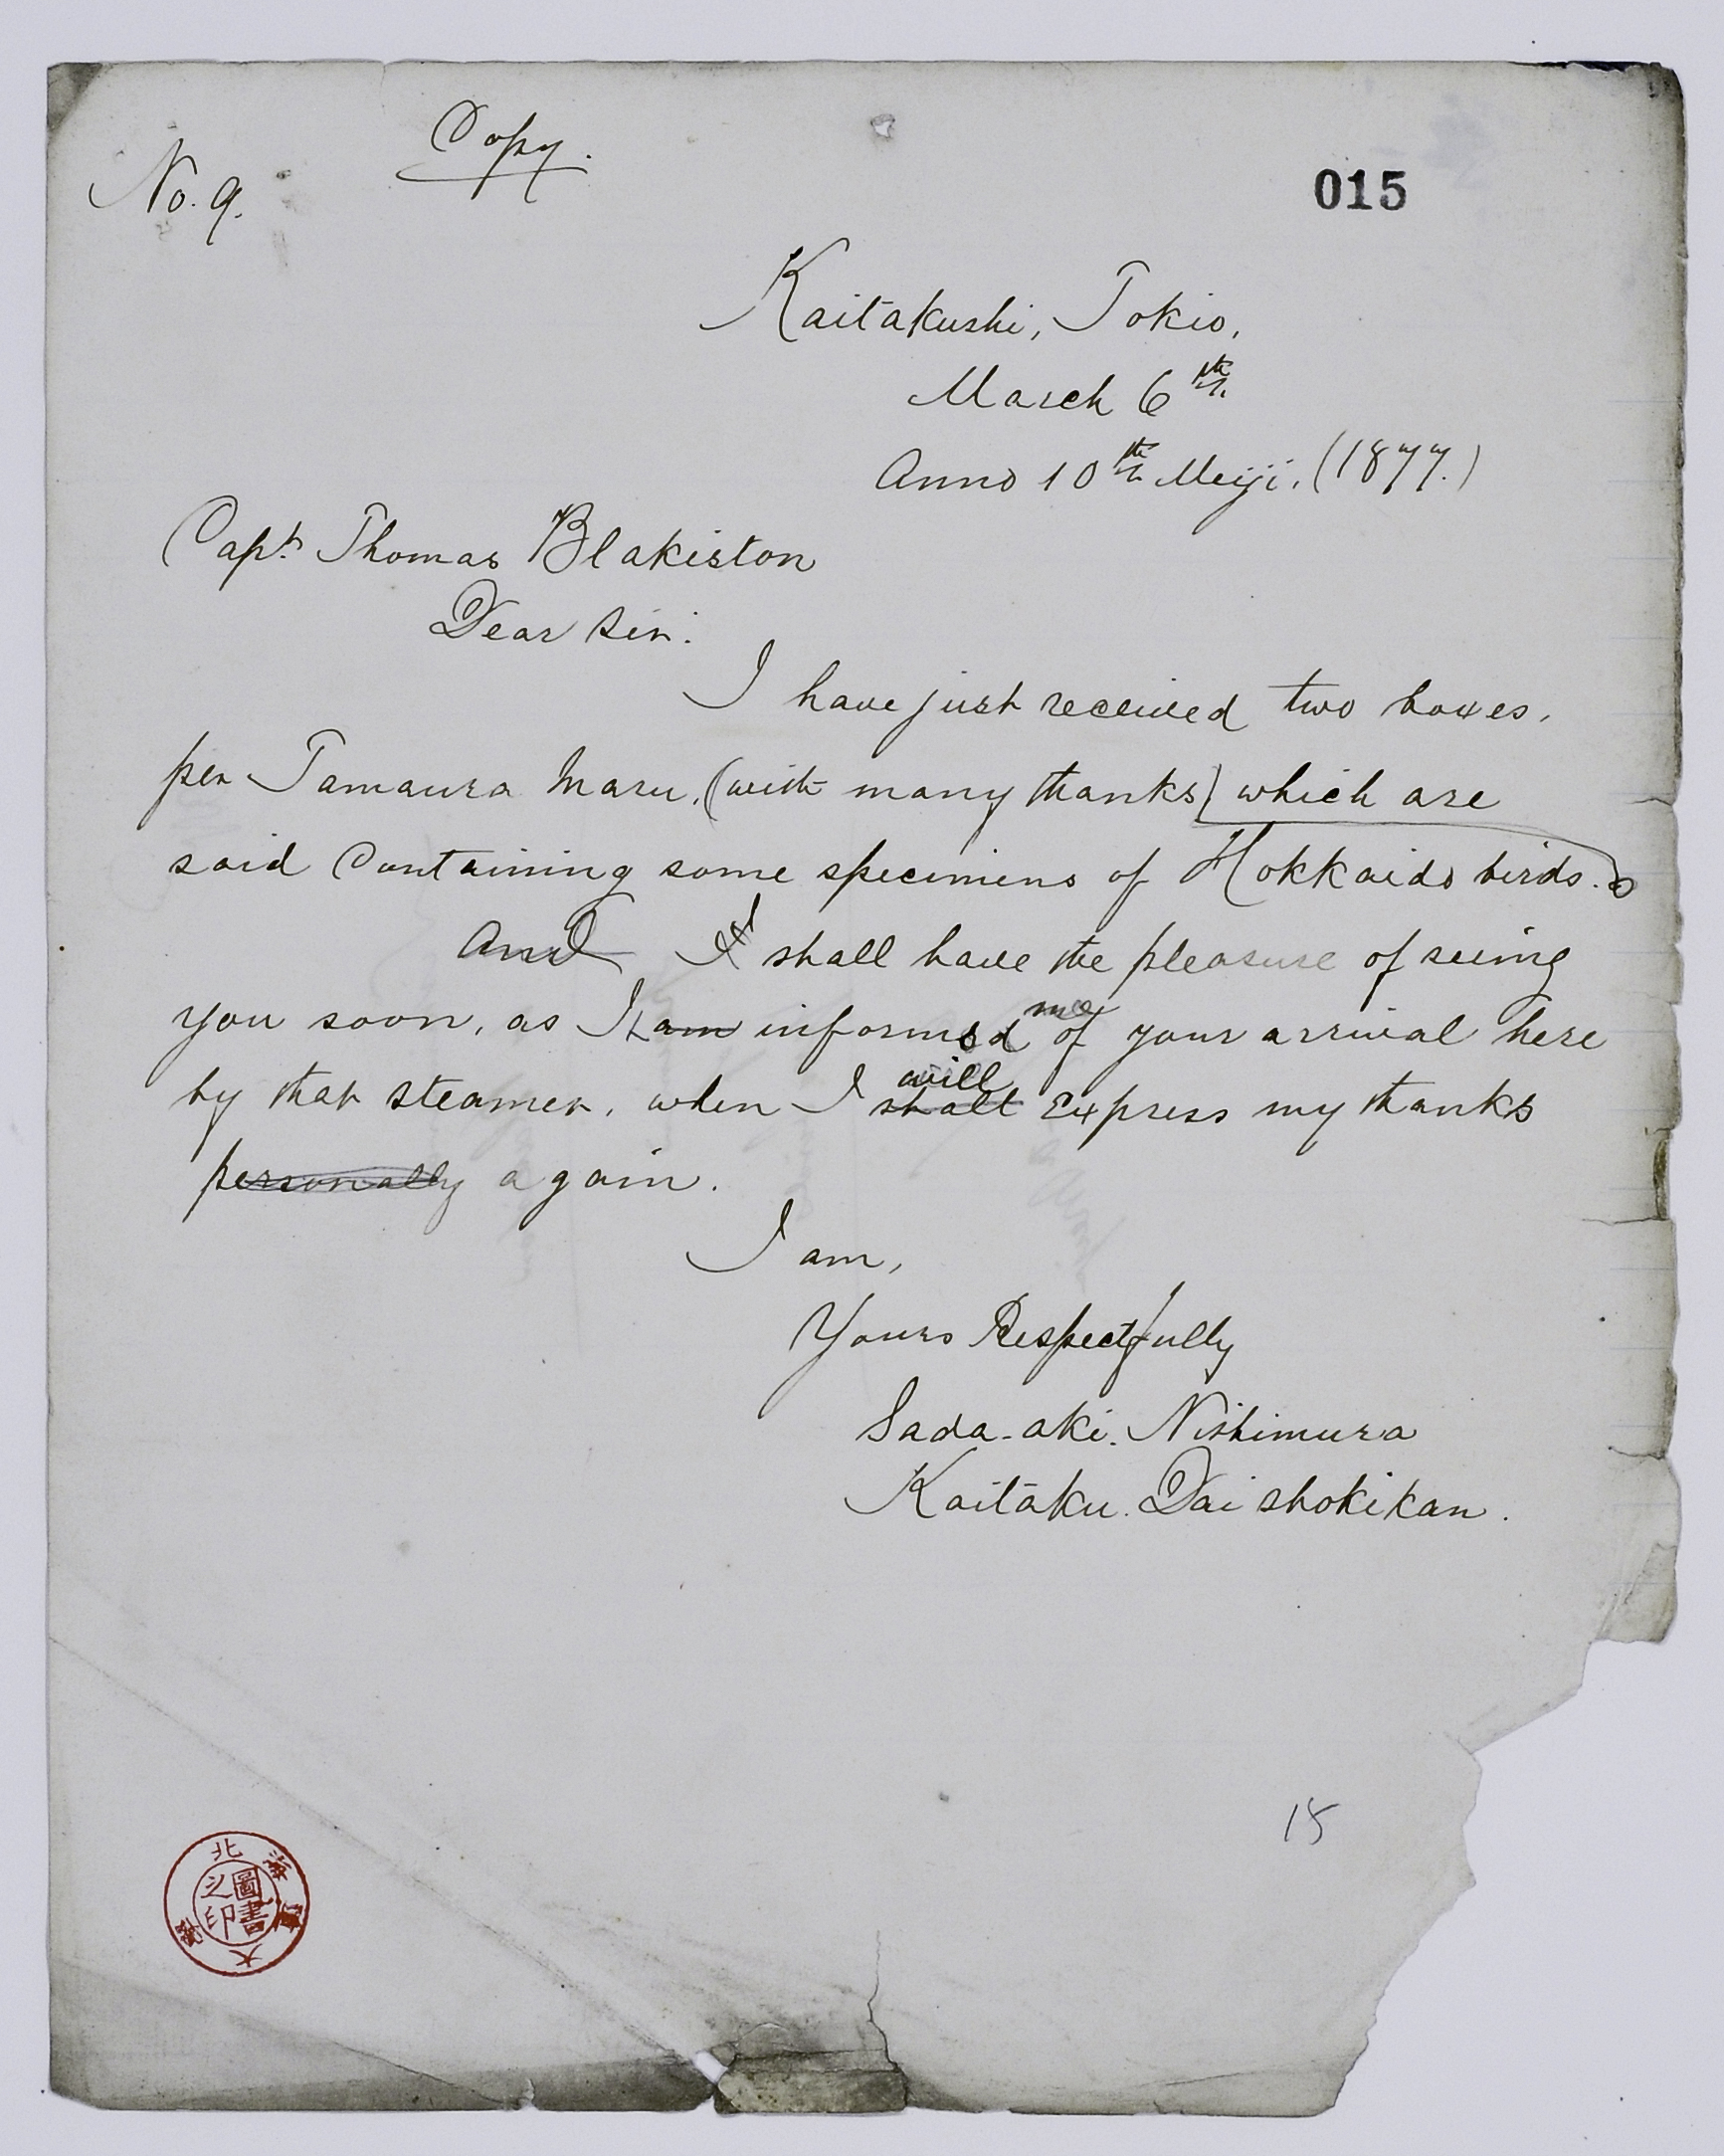 Copy.
No. 9.
015
Kaitakushi, Tokio,
March 6th
Anno 10th Meiji, (1877.)
Capt. Thomas Blakiston
Dear Sir.
I have just received two boxes,
per Tamaura Maru, (with many thanks) which are
said Containing some specimens of Hokkaido birds.
And I shall have the pleasure of seeing
you soon, as I am informed me of your arrival here
by that steamer, when I shall will Express my thanks
personally again.
I am,
Yours Respectfully
Sada-aki. Nishimura
Kaitaku. Dai shokikan.
15
北海道大學
圖書之印